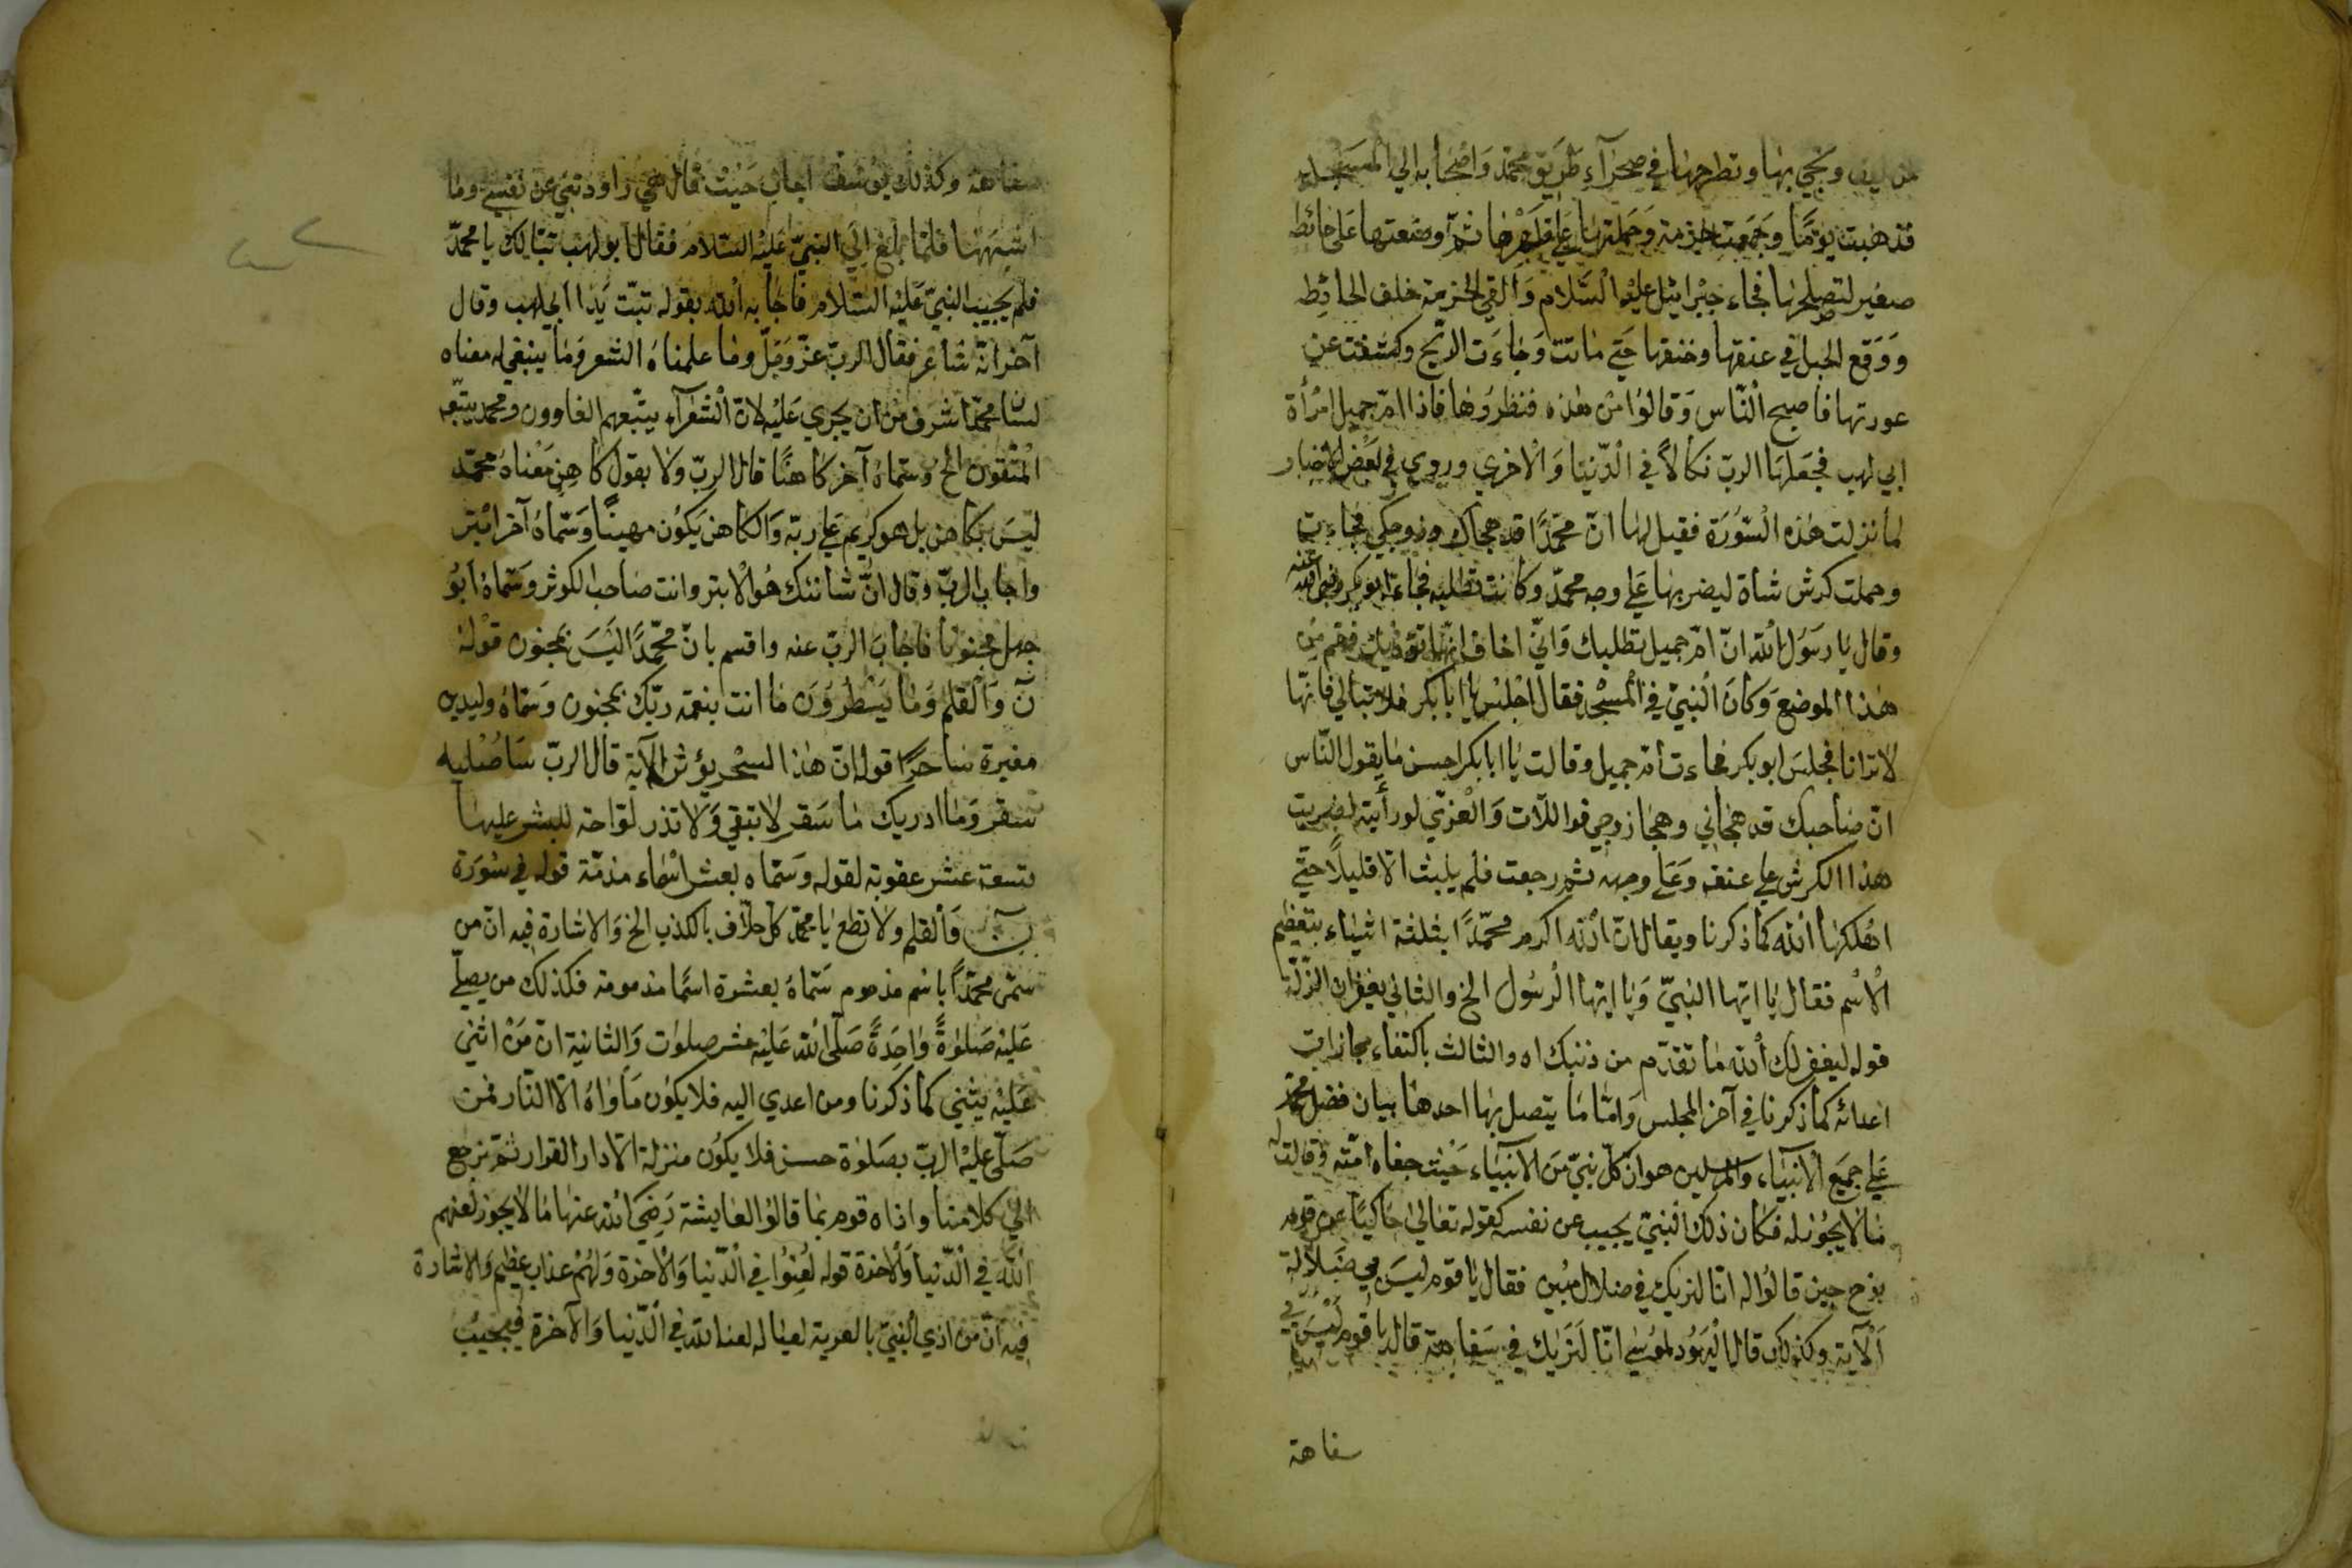 من ليف ويجي بها وتطرحها في صحرآء طريق محمّد واصحابه الي المسجد
فذهبت يومًا وجمعت حزمة وحملتها علي ظهرها ثمّ وضعتها علي حائط
صغير لتصلحها فجاء جبرائيل عليه السّلام والقي الحزمة خلف الحائط
ووقع الحبل في عنقها وخنقها حتي ماتت وجاءت الرّيح وكشفت عن
عورتها فاصبح النّاس وقالوا من هذه فنظروها فاذا امّ جميل امرأة
ابي لهب فجعلها الربّ نكالاً في الدّنيا والاخري وروي في بعض الاخبار
لما نزلت هذه السّورة فقيل لها انّ محمّدًا قد هجاك وزوجكي فجاءت
وحملت كرش شاة ليضربها علي وجه محمّد وكانت تطلبه فجاء ابو بكر رضي الله عنه
وقال يا رسول الله انّ امّ جميل تطلبك وانّي اخاف انّها تؤذيك فقم من
هذا الموضع وكان النبيّ في المسجد فقال اجلس يا ابا بكر فلا تبالي فانّها
لا ترانا فجلس ابو بكر فجاءت امّ جميل وقالت يا ابا بكر احسن ما يقول النّاس
انّ صاحبك قد هجاني وهجا زوجي فواللّات والعزّي لو رأيته لضربت
هذا الكرش علي عنقه وعلي وجهه ثمّ رجعت فلم يلبث الّا قليلًا حتّي
اهلكها الله كما ذكرنا ويقال انّ الله اكرم محمّدًا بثلثة اشياء بتعظيم
الاسم فقال يا ايّها النبيّ ويا ايّها الرّسول الخ والثاني بغفران الزّلّة
قوله ليغفر لك الله ما تقدّم من ذنبك اه والثالث باكتفاء مجازات
اعدائه كما ذكرنا في آخر المجلس وامّا ما يتصل بها احدها بيان فضل محمّد
علي جميع الانبيآء والمرسلين هو انّ كلّ نبيّ من الانبيآء حيث جفاه امّته وقالت له
ما لا يجوز له فكان ذلك النبيّ يجيب عن نفسه كقوله تعالي حاكيًا عن قوم
نوح حين قالوا له انّا لنريك في ضلال مبين فقال يا قوم ليس بي ضلالة
الآية وكذلك قال اليهود لموسي انّا لنريك في سفاهة قال يا قوم ليس بي
سفاهة
سفاهة وكذلك يوسف اجاب حيث قال هي راودتني عن نفسي وما
اشبهها فلمّا بلغ الي النبيّ عليه السّلام فقال ابو لهب تبّا لك يا محمّد
فلم يجيب النبيّ عليه السّلام فاجابه الله بقوله تبّت يدا ابي لهب وقال
آخر انّه شاعر فقال الربّ عزّ وجلّ وما علمناه الشعر وما ينبغي له معناه
لسان محمّد اشرف من ان يجري عليه لانّ الشّعرآء يتّبعهم الغاوون ومحمد يتّبعه
المتّقون الخ وسمّاه آخر كاهنًا قال الربّ ولا بقول كاهن معناه محمّد
ليس بكاهن بل هو كريم علي ربّه والكاهن يكون مهينًا وسمّاه آخر ابتر
واجاب الربّ وقال انّ شانئك هو الابتر وانت صاحب الكوثر وسمّاه ابو
جهل مجنونا فاجاب الربّ عنه واقسم بانّ محمّدًا ليس بمجنون قوله
نۤ والقلم وما يسطرون ما انت بنعمة ربّك بمجنون وسمّاه وليد بن
مغيرة ساحرًا قوله انّ هذا السّحر يؤثر الآية قال الربّ سأصليه
سقر وما ادريك ما سقر لا تبقي ولا تذر لوّاحة للبشر عليها
تسعة عشر عقوبة لقوله وسمّاه بعشر اسماء مذمّة قوله في سورة
نۤ والقلم ولا تطع يا محمّد كلّ حلّاف بالكذب الخ والاشارة فيه انّ من
سمّي محمّدًا باسم مذموم سمّاه بعشرة اسما مذمومة فكذلك من يصلّي
عليه صلوة واحدة صلّي الله عليه عشر صلوات والثانية انّ من اثني
عليه يثني كما ذكرنا ومن اعدي اليه فلا يكون مأواه الّا النّار فمن
صلّي عليه الربّ بصلوة حسن فلا يكون منزلة الّا دار القرار ثمّ نرجع
الي كلامنا واذاه قوم بما قالوا لعايشة رضي الله عنها ما لا يجوز لعنهم
الله في الدّنيا والاخرة قوله لعنوا في الدّنيا والاخرة ولهم عذاب عظيم والاشارة
فيه انّ من اذي النبيّ بالفرية لعياله لعنه الله في الدّنيا والآخرة فيجيب